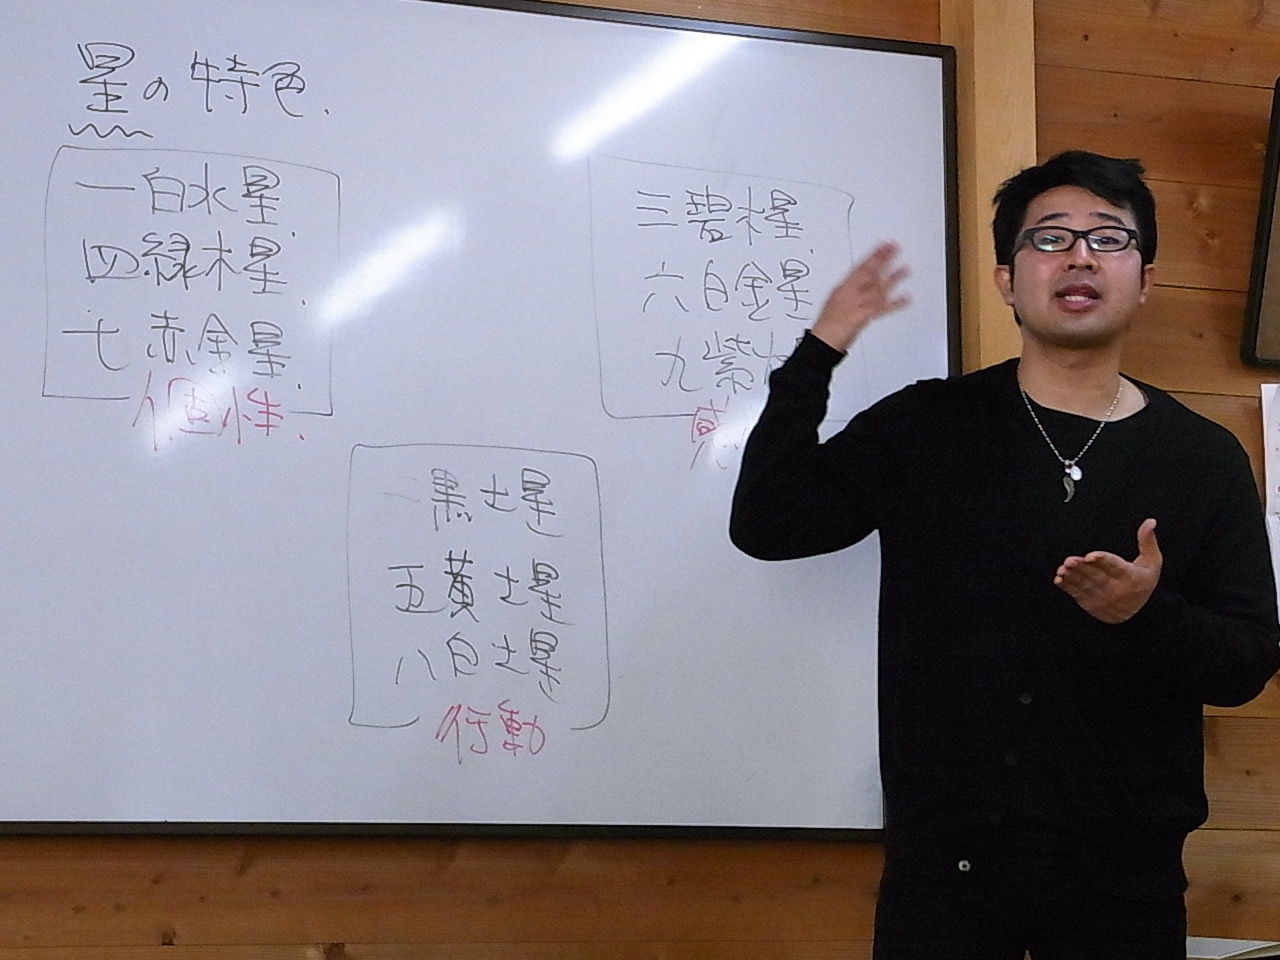 星の特色.
一白水星.
四緑木星.
七赤金星.
個性.
三碧木星.
六白金星
九紫
二黒土星
五黄土星
八白土星
行動